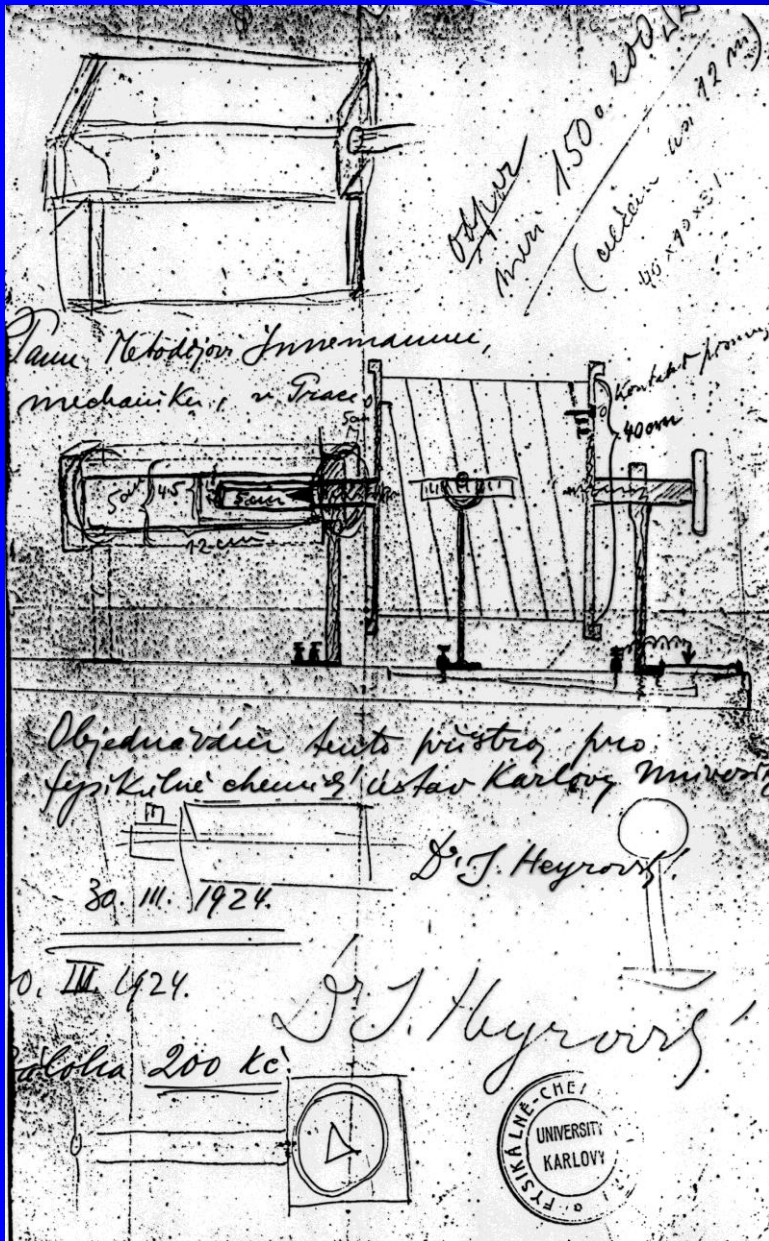 odpor
měří 150 a 200
12 m)
40 x 40 x 31
Panu Metodějovi Innemannu,
mechaniku, v Praze
5cm
Kontakt
40cm
50
45
5cm
12cm
Objednávám tento přístroj pro
fysikálně chemický ústav Karlovy University
Dr. J. Heyrovský
30. III. 1924.
0. III. 1924.
Dr J. Heyrovský
Záloha 200 Kč
FYSIKÁLNĚ-CHE
UNIVERSITY
KARLOVY